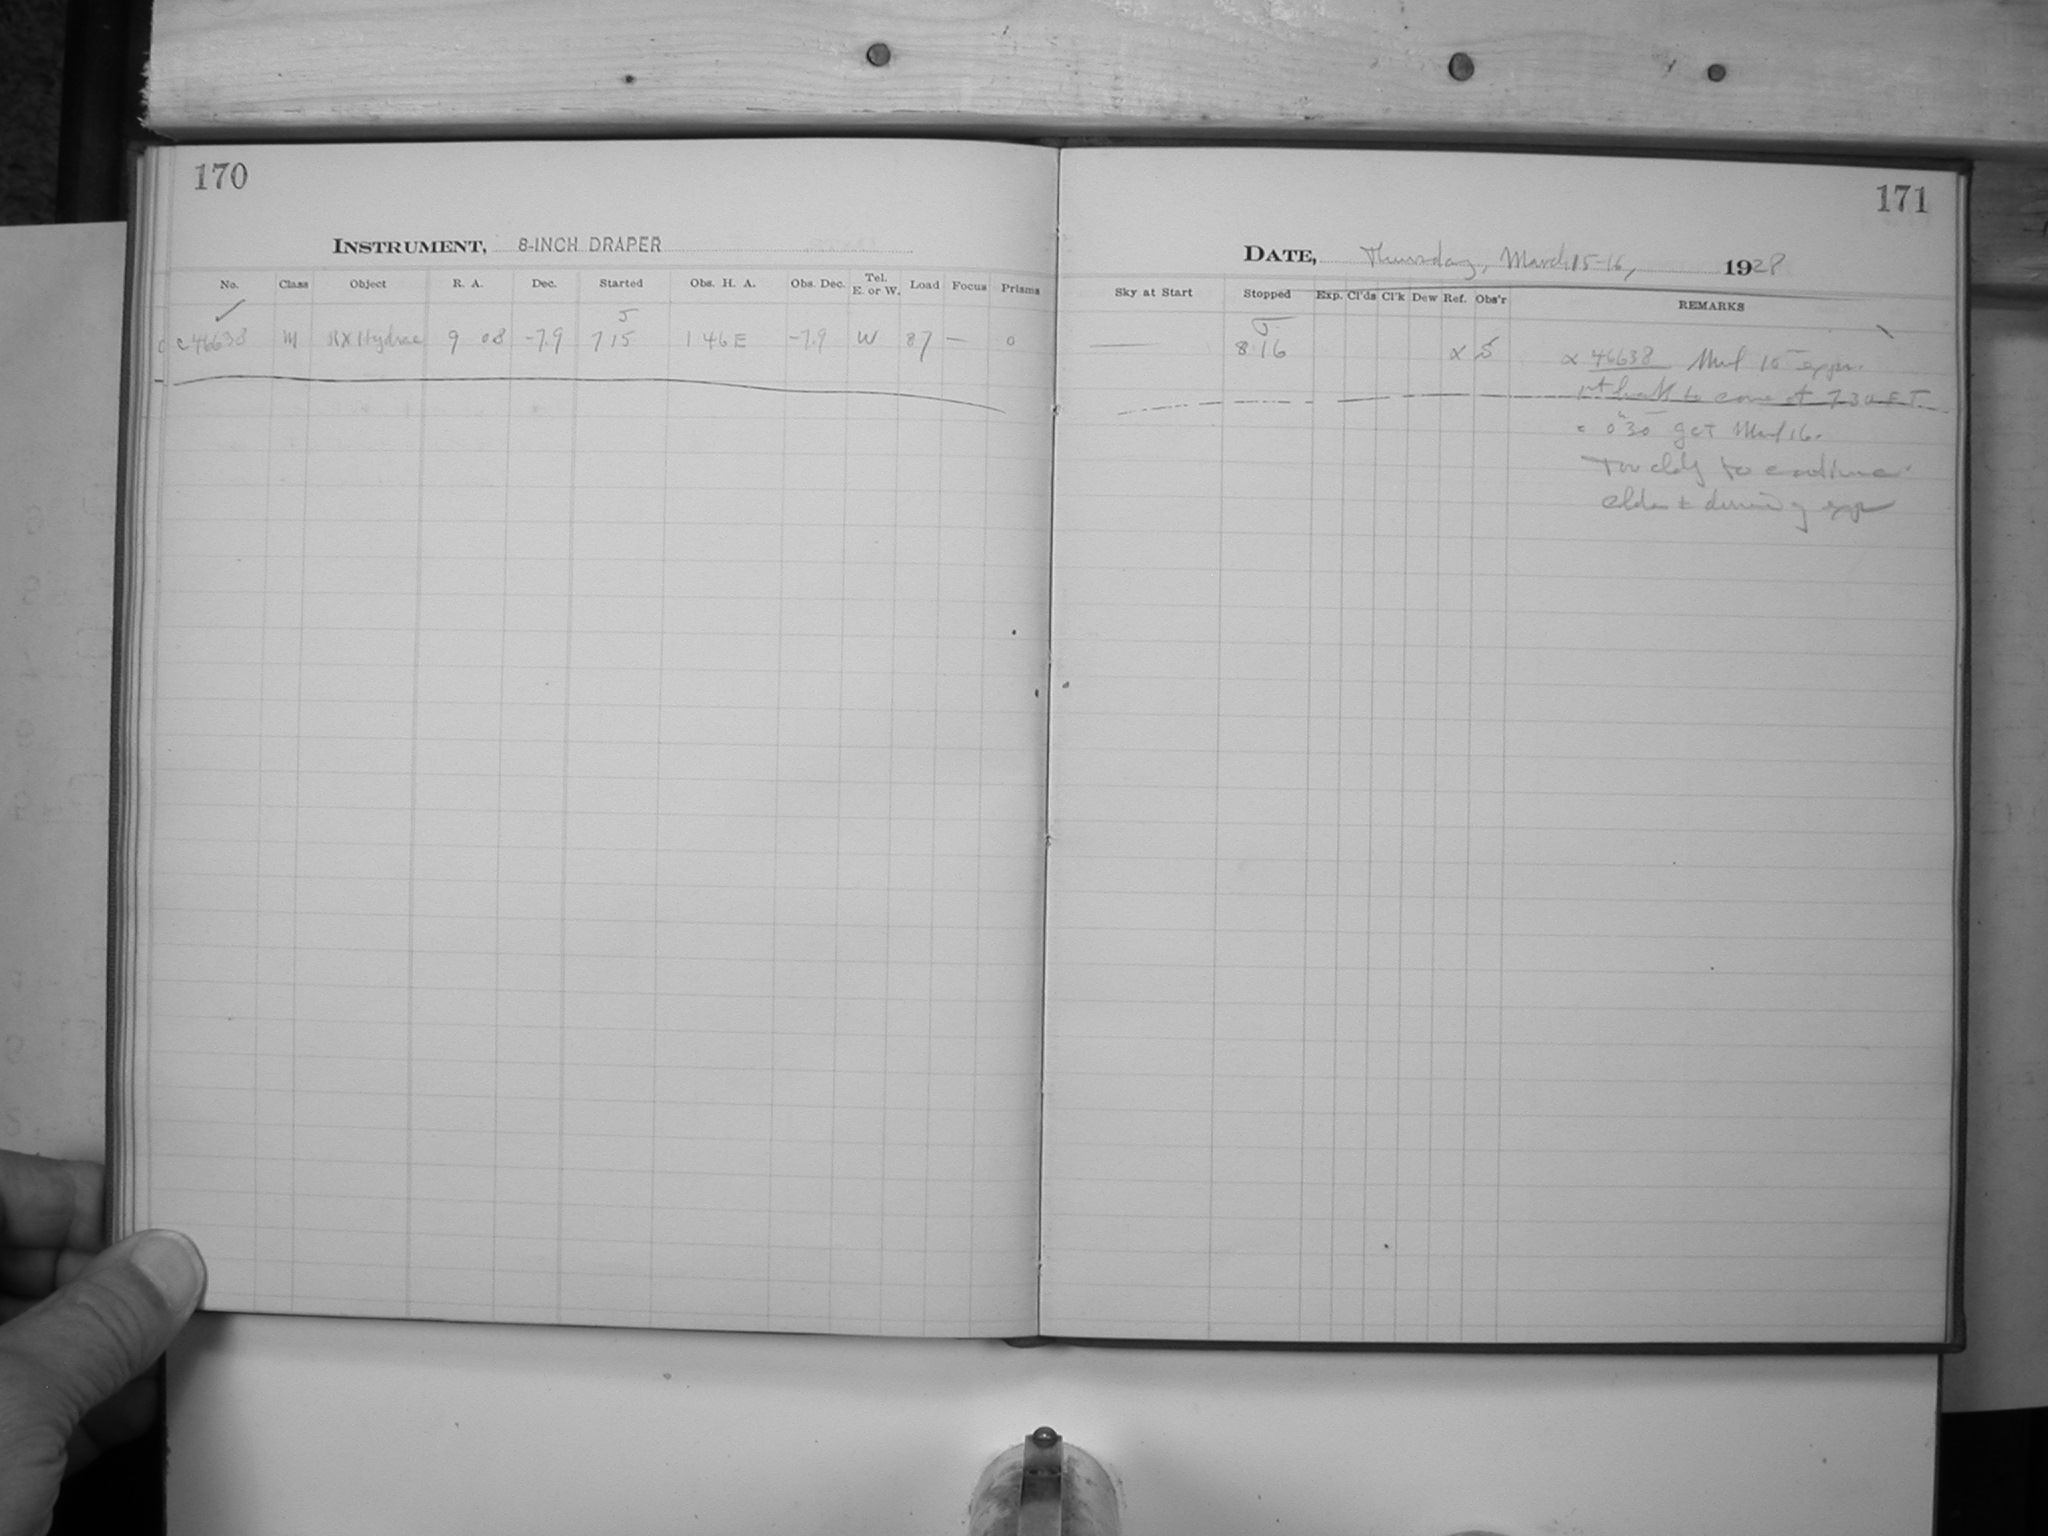 170
INSTRUMENT, 8-INCH DRAPER
No. Class Object R. A. Dec. Started Obs. H. A. Obs. Dec. Tel. E. or W. Load Focus Prisms
J
c 46638 M RX Hydrae 9 08 -7.9 7 15 1 46 E -7.9 W 87 — 0
171
DATE, Thursday, March 15-16, 1928
Sky at Start Stopped Exp. Cl'ds Cl'k Dew Ref. Obs'r REMARKS
J
8 16 x S
x 46638 15
to come at 730 E.T.
= 0 30 GCT 16.
cldy to continue
during exp